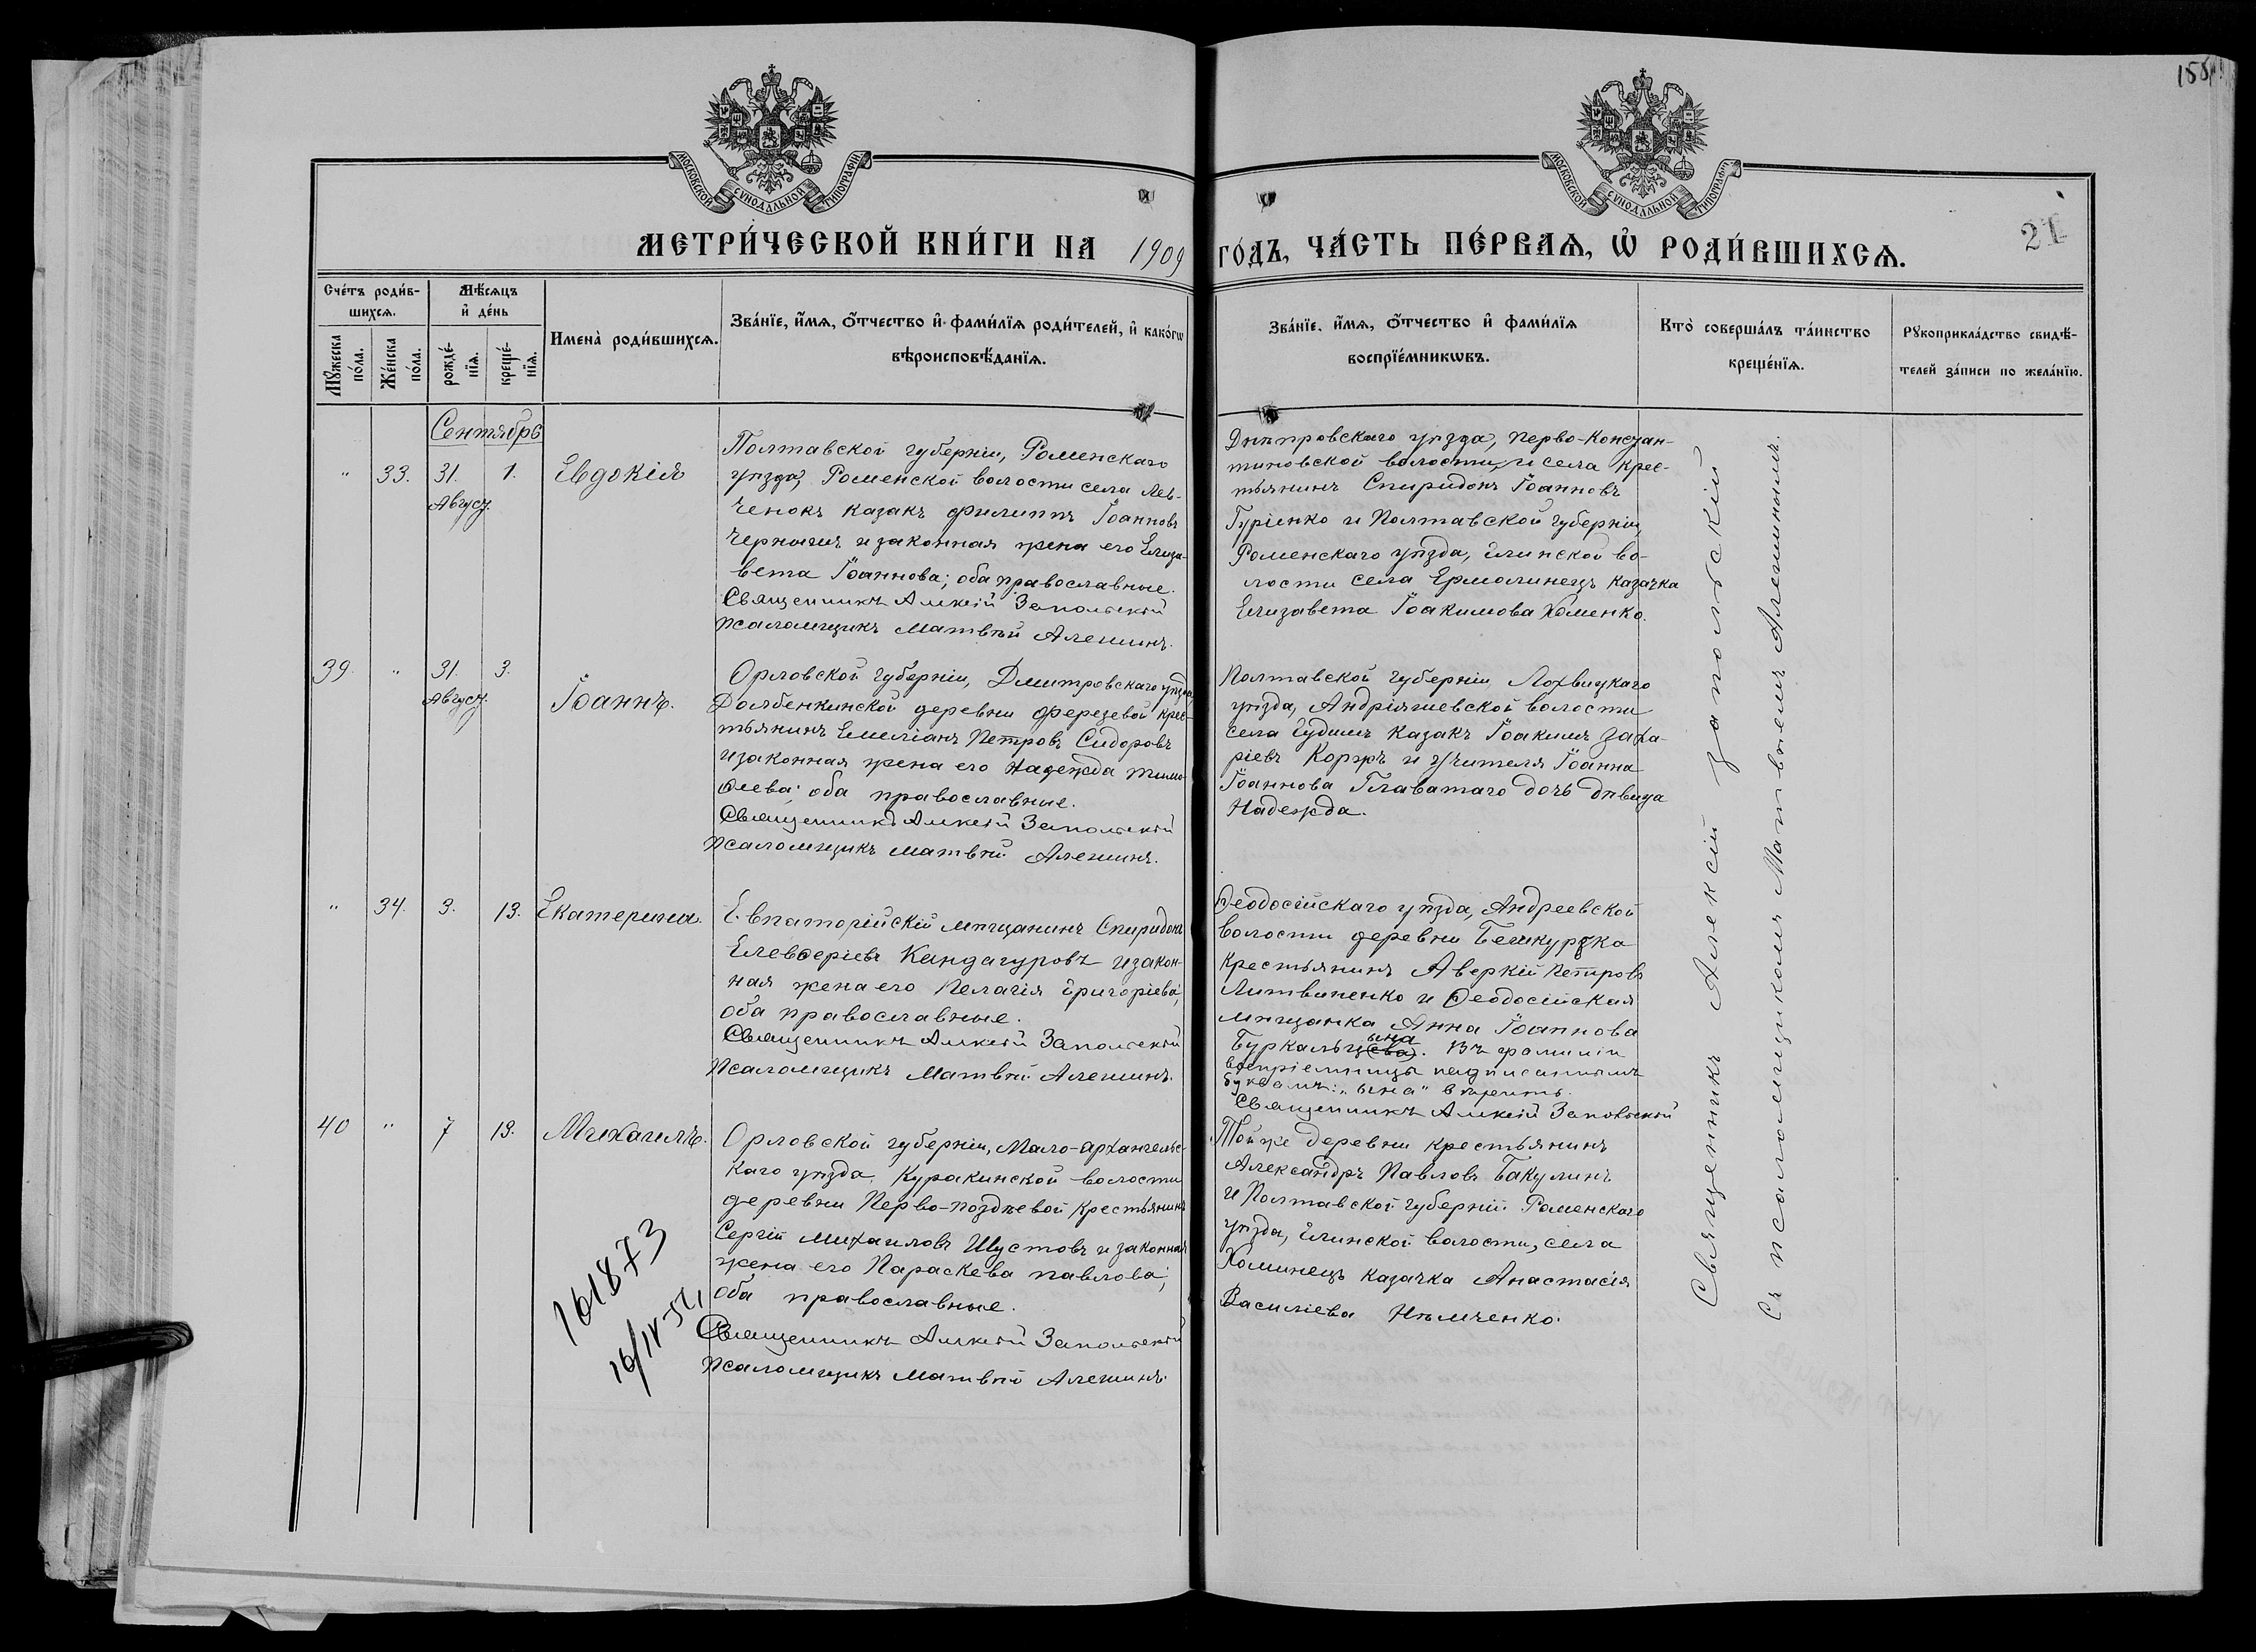 155
МОСКОВСКОЙ СѴНОДАЛЬНОЙ ТИПОГРАФІИ
МОСКОВСКОЙ СѴНОДАЛЬНОЙ ТИПОГРАФІИ
21
МЕТРИ́ЧЕСКОЙ КНИ́ГИ НА 1909 ГО́ДЪ, ЧА́СТЬ ПЕ́РВАѦ, Ѡ҆ РОДИ́ВШИХСѦ.
Сче́тъ роди́в-
шихсѧ.
Мꙋ́жеска
по́ла.
Же́нска
по́ла.
Мѣ́сѧцъ
и҆ де́нь
рожде́-
нїѧ.
креще́-
нїѧ.
Имена̀ роди́вшихсѧ.
Зва́нїе, и҆́мѧ, о҆́тчество и҆ фами́лїѧ роди́телей, и҆ како́гѡ
вѣроисповѣ́данїѧ.
Зва́нїе, и҆́мѧ, о҆́тчество и҆ фами́лїѧ
воспрїе́мникѡвъ.
Кто̀ соверша́лъ та́инство
креще́нїѧ.
Рꙋкоприкла́дство свидѣ́-
телей за́писи по жела́нїю.
Сентябрь
" 33. 31. Август. 1. Евдокія
Полтавской губерніи, Роменскаго
уѣзда, Роменской волости села Лев-
ченокъ казакъ Филиппъ Іоанновъ
Чернышъ и законная жена его Елиза-
вета Іоаннова; оба православные.
Священникъ Алексій Запольскій
Псаломщикъ Матвѣй Алешинъ.
Днѣпровскаго уѣзда, Перво-Констан-
тиновской волости и села крес-
тьянинъ Спиридонъ Іоанновъ
Гуріенко и Полтавской губерніи,
Роменскаго уѣзда, Глинской во-
лости села Ермолинецъ казачка
Елизавета Іоакимова Хоменко.
39. " 31. Август. 3. Іоаннъ.
Орловской губерніи, Дмитровскаго уѣзда,
Долбенкинской деревни Ферезевой крес-
тьянинъ Емеліанъ Петровъ Сидоровъ
и законная жена его Надежда Тимо-
ѳеева; оба православные.
Священникъ Алексій Запольскій
Псаломщикъ Матвѣй Алешинъ.
Полтавской губерніи Лохвицкаго
уѣзда, Андріяшевской волости
села Гудимъ казакъ Іоакимъ Заха-
ріевъ Коржъ и учителя Іоанна
Іоаннова Главатаго дочь дѣвица
Надежда.
" 34. 3. 13. Екатерина.
Евпаторійскій мѣщанинъ Спиридонъ
Елевѳеріевъ Кандагуровъ и закон-
ная жена его Пелагія Григоріева;
оба православные.
Священникъ Алексій Запольскій
Псаломщикъ Матвѣй Алешинъ.
Ѳеодосійскаго уѣзда, Андреевской
волости деревни Бешкуртка
крестьянинъ Аверкій Петровъ
Литвиненко и Ѳеодосійская
мѣщанка Анна Іоаннова
ына
Буркальц(ева). Въ фамиліи
воспріемницы надписаннымъ
буквамъ: „ына" вѣрить.
Священникъ Алексій Запольскій
40 " 7 13. Михаилъ.
Орловской губерніи, Мало-Архангельс-
каго уѣзда, Куракинской волости
деревни Перво-Поздѣевой крестьянинъ
Сергій Михаиловъ Шустовъ и законная
жена его Параскева Павлова;
оба православные.
Священникъ Алексій Запольскій
Псаломщикъ Матвѣй Алешинъ.
Той же деревни крестьянинъ
Александръ Павловъ Бакулинъ
и Полтавской губерніи Роменскаго
уѣзда, Глинской волости, села
Хоминецъ казачка Анастасія
Василіева Нѣмченко.
161873
16/IV 54
Священникъ Алексій Запольскій
съ псаломщикомъ Матвѣемъ Алешинымъ.